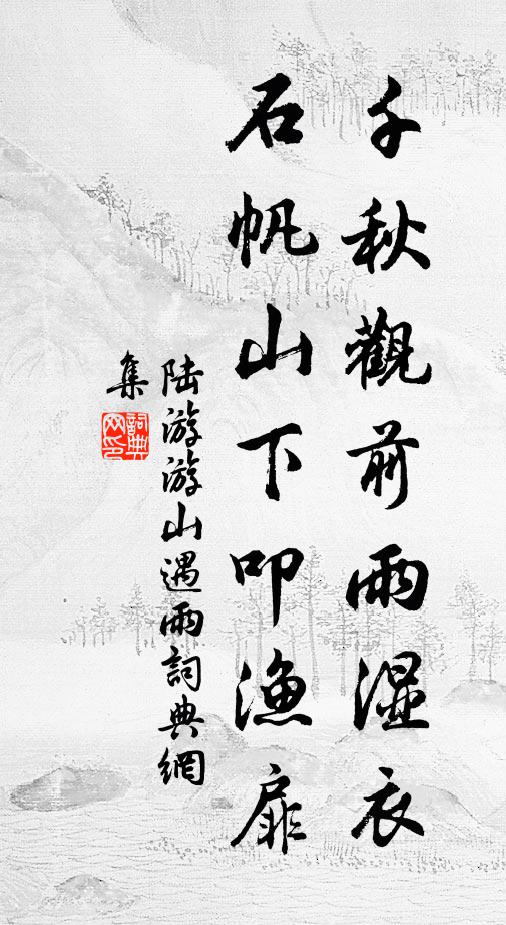 千秋觀前雨湿衣
石帆山下叩漁扉
陆游游山遇雨詞典網
集
詞典网印